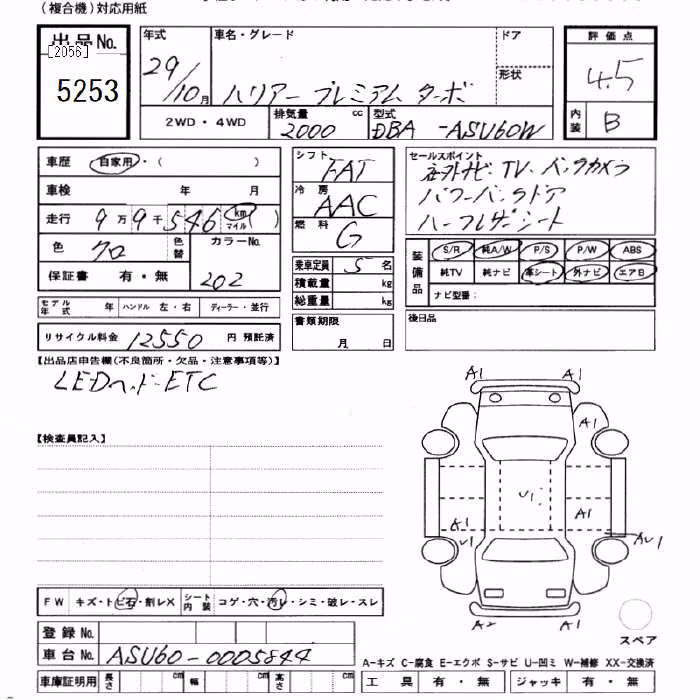 (複合機)対応用紙
出品No.
[2056]
5253
年式
29/10月
車名・グレード
ハリアー プレミアム ターボ
ドア
形状
評価点
4.5
内装 B
2WD・4WD
排気量 2000 cc
型式 DBA -ASU60W
車歴 自家用・( )
車検 年 月
走行 9万9千546 km マイル )
色 クロ 色替
カラーNo. 202
保証書 有・無
モデル年式 年 ハンドル 左・右 ディーラー・並行
リサイクル料金 12550 円 預託済
シフト FAT
冷房 AAC
燃料 G
乗車定員 5 名
積載量 kg
総重量 kg
書類期限
月 日
セールスポイント
社外ナビ・TV・バックカメラ
パワーバックドア
ハーフレザーシート
装備品
S/R 純A/W P/S P/W ABS
純TV 純ナビ 革シート 外ナビ エアB
ナビ型番:
後日品
【出品店申告欄(不良箇所・欠品・注意事項等)】
LEDヘッド・ETC
【検査員記入】
A1 A1
A1
U1
A1 A1
U1 AU1
A2 A1
スペア
FW キズ・トビ石・割レX シート内装 コゲ・穴・汚レ・シミ・破レ・スレ
登録No.
車台No. ASU60-0005844
車庫証明用 長さ cm 幅 cm 高さ cm
A-キズ C-腐食 E-エクボ S-サビ U-凹ミ W-補修 XX-交換済
工具 有・無 ジャッキ 有・無